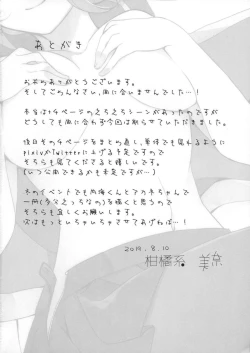 あとがき
お求めありがとうございます。
そしてごめんなさい、間に合いませんでした…！
本当は1ページのえちえちシーンがあったのですが
どうしても間に合わず今回は削らせていただきました。
後日そのページをまとめ直し、単体でも見れるように
pixivかTwitterに上げる予定ですので
そちらも見てくださると嬉しいです。
(いつ出来てるかも未定ですが…)
次のイベントでも内海くんとアカネちゃんで
一冊(多分えっちなの)を描くと思うので
そちらも宜しくお願いします。
次はもっといちゃいちゃさせてあげねば…！
2019.8.10
柑橘系